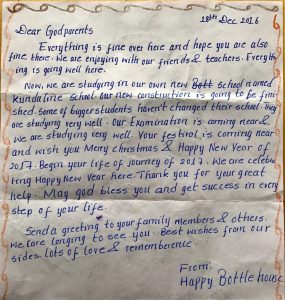 18th Dec 2016
Dear Godparents
Everything is fine over here and hope you are also
fine there. We are enjoying with our friends & teachers. Everyth
ing is going well here.
Now, we are studying in our own new Bott school named
Kundaline school. our new construction is going to be fini
shed. some of bigger students haven't changed their school. They
are studying very well. Our Examination is coming near &
we are studying very well. Your festival is coming near
and wish you Merry christmas & Happy New Year of
2017. Begin your life of journey of 2017. We are celeb
tring Happy New Year here. Thank you for your great
help. May god bless you and get success in every
step of your life.
Send a greeting to your family members & others.
We are longing to see you. Best wishes from our
sides. lots of love & rememberence.
From,
Happy Bottle house